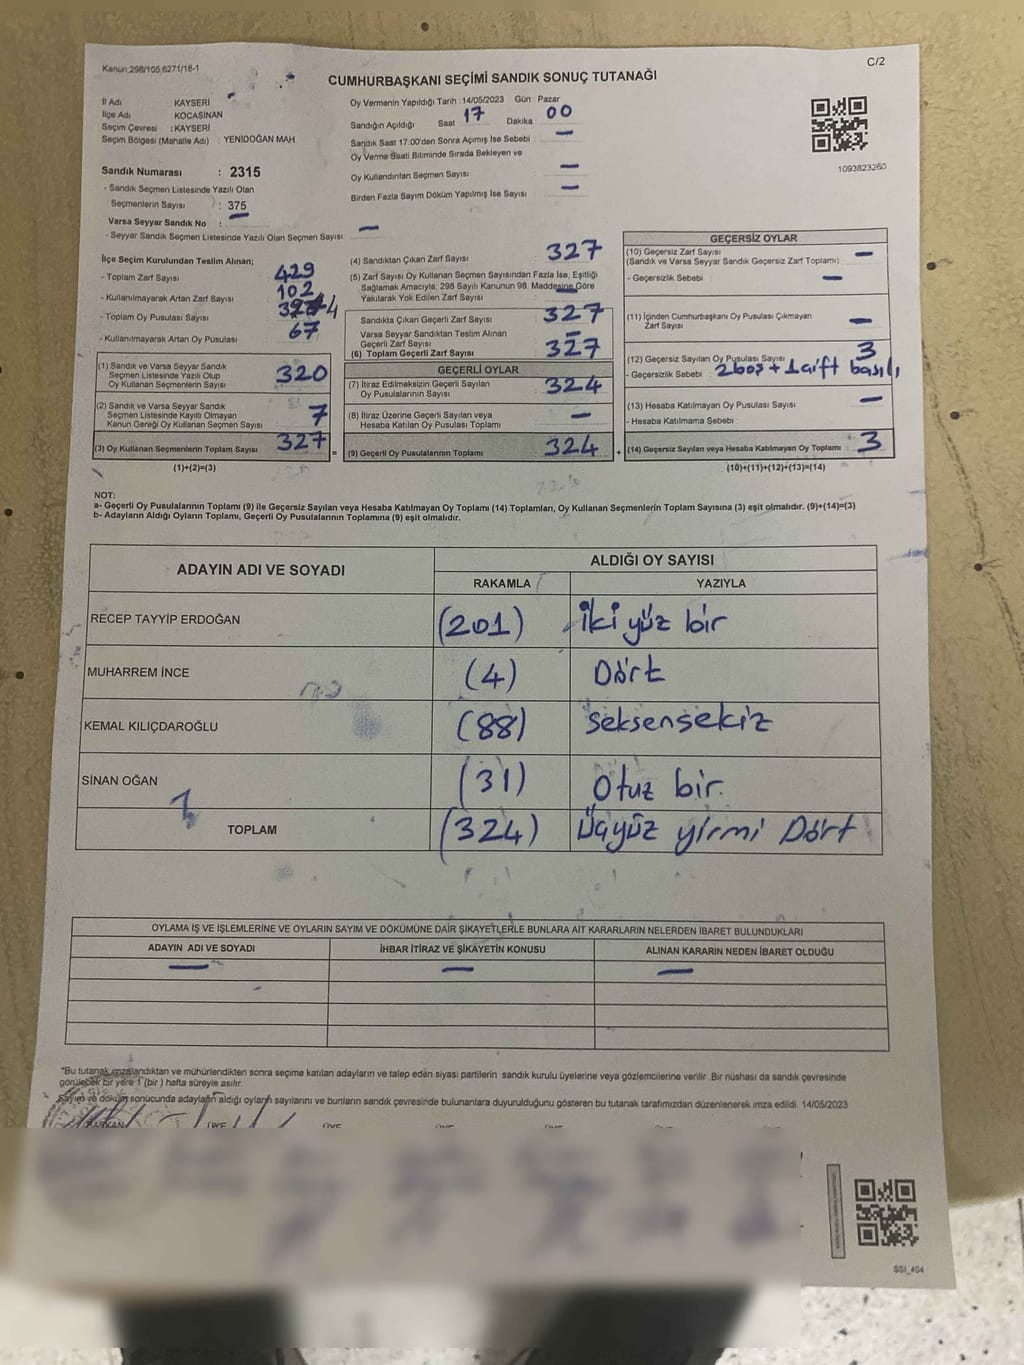 Kanun 298/105,6271/18-1
C/2
CUMHURBAŞKANI SEÇİMİ SANDIK SONUÇ TUTANAĞI
İl Adı KAYSERİ
İlçe Adı KOCASİNAN
Seçim Çevresi : KAYSERİ
Seçim Bölgesi (Mahalle Adı) : YENİDOĞAN MAH
Sandık Numarası : 2315
- Sandık Seçmen Listesinde Yazılı Olan
Seçmenlerin Sayısı : 375
Varsa Seyyar Sandık No : —
- Seyyar Sandık Seçmen Listesinde Yazılı Olan Seçmen Sayısı: —
Oy Vermenin Yapıldığı Tarih : 14/05/2023 Gün Pazar
Sandığın Açıldığı Saat 17 Dakika 00
Sandık Saat 17:00'den Sonra Açımış İse Sebebi —
Oy Verme Saati Bitiminde Sırada Bekleyen ve
Oy Kullandırılan Seçmen Sayısı —
Birden Fazla Sayım Döküm Yapılmış İse Sayısı —
1093823260
İlçe Seçim Kurulundan Teslim Alınan;
- Toplam Zarf Sayısı 429
- Kullanılmayarak Artan Zarf Sayısı 102
- Toplam Oy Pusulası Sayısı
- Kullanılmayarak Artan Oy Pusulası 67
(1) Sandık ve Varsa Seyyar Sandık
Seçmen Listesinde Yazılı Olup
Oy Kullanan Seçmenlerin Sayısı 320
(2) Sandık ve Varsa Seyyar Sandık
Seçmen Listesinde Kayıtlı Olmayan
Kanun Gereği Oy Kullanan Seçmen Sayısı 7
(3) Oy Kullanan Seçmenlerin Toplam Sayısı 327
(1)+(2)=(3)
(4) Sandıktan Çıkan Zarf Sayısı 327
(5) Zarf Sayısı Oy Kullanan Seçmen Sayısından Fazla İse, Eşitliği
Sağlamak Amacıyla, 298 Sayılı Kanunun 98. Maddesine Göre
Yakılarak Yok Edilen Zarf Sayısı —
Sandıkta Çıkan Geçerli Zarf Sayısı 327
Varsa Seyyar Sandıktan Teslim Alınan
Geçerli Zarf Sayısı —
(6) Toplam Geçerli Zarf Sayısı 327
GEÇERLİ OYLAR
(7) İtiraz Edilmeksizin Geçerli Sayılan
Oy Pusulalarının Sayısı 324
(8) İtiraz Üzerine Geçerli Sayılan veya
Hesaba Katılan Oy Pusulası Toplamı —
= (9) Geçerli Oy Pusulalarının Toplamı 324
GEÇERSİZ OYLAR
(10) Geçersiz Zarf Sayısı
(Sandık ve Varsa Seyyar Sandık Geçersiz Zarf Toplamı) —
- Geçersizlik Sebebi : —
(11) İçinden Cumhurbaşkanı Oy Pusulası Çıkmayan
Zarf Sayısı —
(12) Geçersiz Sayılan Oy Pusulası Sayısı 3
- Geçersizlik Sebebi : 2 boş + 1 çift basılı
(13) Hesaba Katılmayan Oy Pusulası Sayısı —
- Hesaba Katılmama Sebebi :
+ (14) Geçersiz Sayılan veya Hesaba Katılmayan Oy Toplamı 3
(10)+(11)+(12)+(13)=(14)
NOT:
a- Geçerli Oy Pusulalarının Toplamı (9) ile Geçersiz Sayılan veya Hesaba Katılmayan Oy Toplamı (14) Toplamları, Oy Kullanan Seçmenlerin Toplam Sayısına (3) eşit olmalıdır. (9)+(14)=(3)
b- Adayların Aldığı Oyların Toplamı, Geçerli Oy Pusulalarının Toplamına (9) eşit olmalıdır.
ADAYIN ADI VE SOYADI ALDIĞI OY SAYISI
RAKAMLA YAZIYLA
RECEP TAYYİP ERDOĞAN (201) iki yüz bir
MUHARREM İNCE (4) Dört
KEMAL KILIÇDAROĞLU (88) seksensekiz
SİNAN OĞAN (31) Otuz bir.
TOPLAM (324) Üçyüz yirmi Dört
OYLAMA İŞ VE İŞLEMLERİNE VE OYLARIN SAYIM VE DÖKÜMÜNE DAİR ŞİKAYETLERLE BUNLARA AİT KARARLARIN NELERDEN İBARET BULUNDUKLARI
ADAYIN ADI VE SOYADI İHBAR İTİRAZ VE ŞİKAYETİN KONUSU ALINAN KARARIN NEDEN İBARET OLDUĞU
— — —
"Bu tutanak imzalandıktan ve mühürlendikten sonra seçime katılan adayların ve talep eden siyasi partilerin sandık kurulu üyelerine veya gözlemcilerine verilir .Bir nüshası da sandık çevresinde
görülebek bir yere 1 (bir ) hafta süreyle asılır.
Sayım ve döküm sonucunda adayların aldığı oyların sayılarını ve bunların sandık çevresinde bulunanlara duyurulduğunu gösteren bu tutanak tarafımızdan düzenlenerek imza edildi. 14/05/2023
BAŞKAN ÜYE ÜYE ÜYE ÜYE
SSI_404